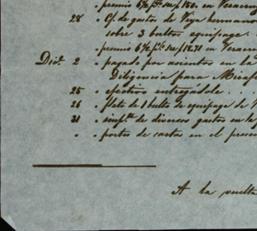 " premio 6% s/150. en Veracruz
28 " Cf. de gastos de Vega hermano
sobre 3 bultos equipage
" premio 6% en Veracruz
Dic. 2 " pagado por asientos en la
Diligencia para
25 " efectivo entregádole . . .
26 " flete de 1 bulto de equipage de
31 " de diversos gastos en la
" " portes de cartas en el
A la vuelta